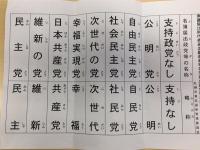 名簿届出政党等の名称 略称
支持政党なし 支持なし
公明党 公明
自由民主党 自民党
社会民主党 社民党
次世代の党 次世代
幸福実現党 幸福
日本共産党 共産党
維新の党 維新
民主党 民主